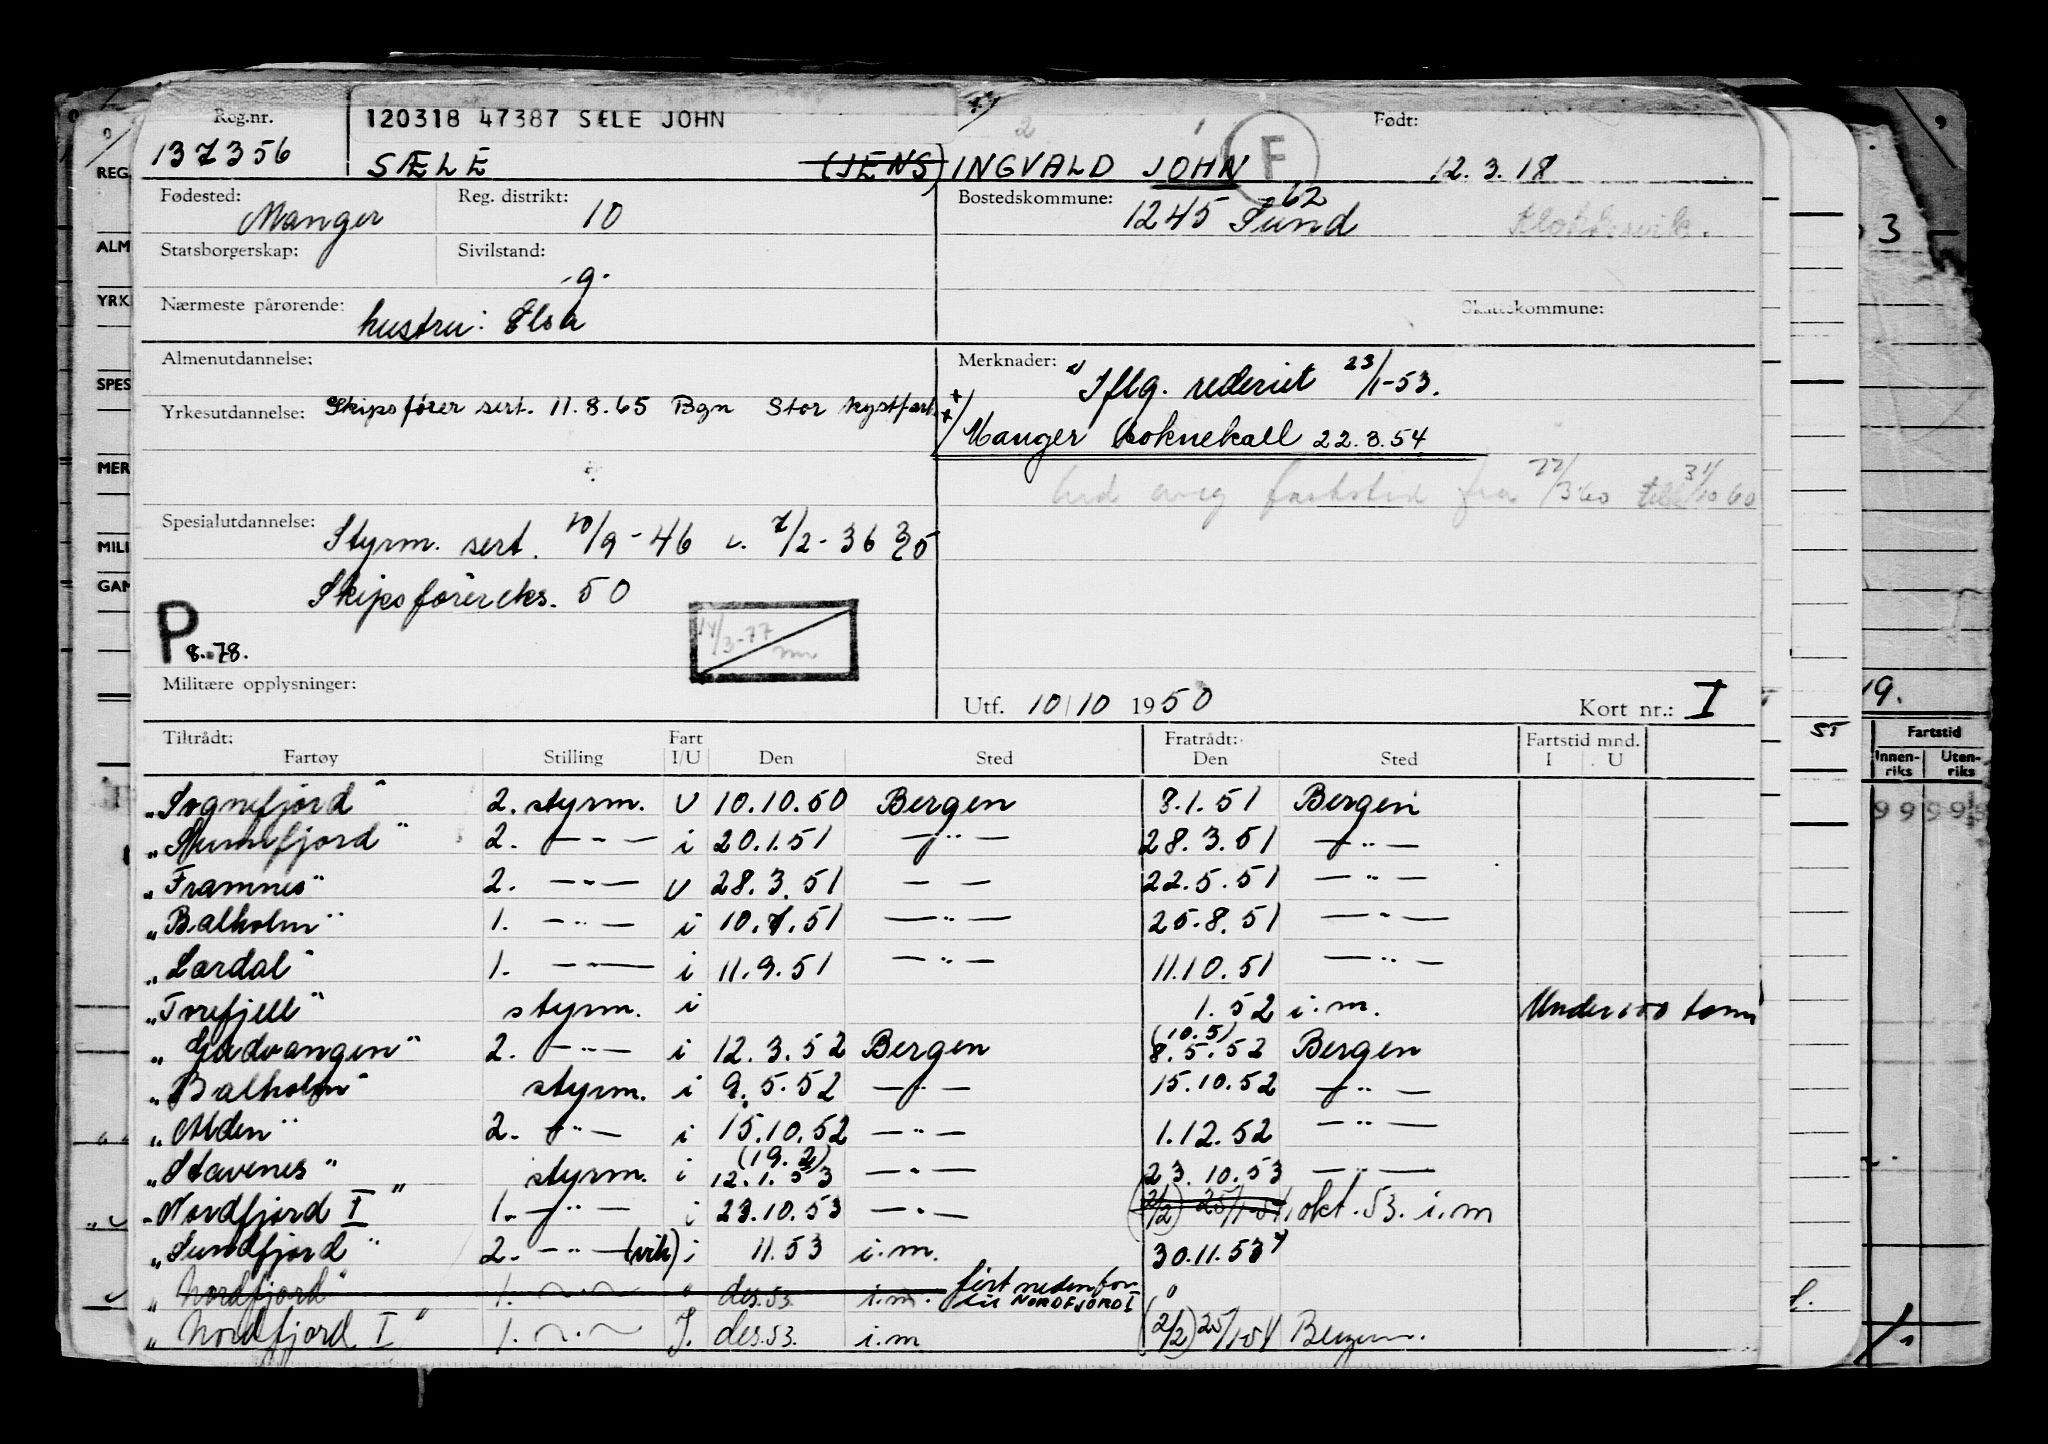 Reg.nr. 120318 47387 SÆLE JOHN Født:
137356 SÆLE (JENS) INGVALD JOHN F 12.3.18
Fødested: Manger Reg. distrikt: 10 Bostedskommune: 1245 Sund 62
Statsborgerskap: Sivilstand: g.
Nærmeste pårørende: hustru: Elsa Skattekommune:
Almenutdannelse: Merknader: Iflg. rederiet 23/1-53.
Yrkesutdannelse: Skipsfører sert. 11.8.65 Bgn Stor kystfart
Manger 22.3.54
fartstid fra 3.60 till 31/10 60
Spesialutdannelse: Styrm. sert. 10/9-46 7/2-36
Skipsførereks. 50
14/3-77
P 8.-78.
Militære opplysninger:
Utf. 10/10 1950 Kort nr.: I
Tiltrådt: Fart Fratrådt: Fartstid mnd.
Fartøy Stilling I/U Den Sted Den Sted I U
"Sognefjord" 2. styrm. U 10.10.50 Bergen 8.1.51 Bergen
"Sunnfjord" 2. —"— i 20.1.51 —"— 28.3.51 —"—
"Framnes" 2. —"— U 28.3.51 — — 22.5.51 —"—
"Balholm" 1. —"— i 10.7.51 —"— 25.8.51 —"—
"Lærdal" 1. —"— i 11.9.51 —"— 11.10.51 —"—
"Torefjell" styrm. i 1.52 i.m. Under 100 tonn
"Gudvangen" 2. —"— i 12.3.52 Bergen (10.5) 8.5.52 Bergen
"Balholm" styrm. i 9.5.52 —"— 15.10.52 —"—
"Alden" 2. —"— i 15.10.52 —"— 1.12.52 —"—
"Stavenes" styrm. i (19.2) 12.1.53 —"— 23.10.53 —"—
"Nordfjord I" 1. —"— i 23.10.53 —"— (2/2) 25/1-54 okt. 53. i.m
"Sunnfjord" 2. —"— (vik) i 11.53 i.m. 30.11.53
"Nordfjord" 1. —"— " des.53 i.m. ført nedenfor
til NORDFJORD I
"Nordfjord I" 1. —"— I. des.53. i.m (2/2) 25/1-54 Bergen.
REG.
ALM
YRK
SPES
MER
MILI
GAM
3
19.
55
Fartstid
Innen-riks Uten-riks